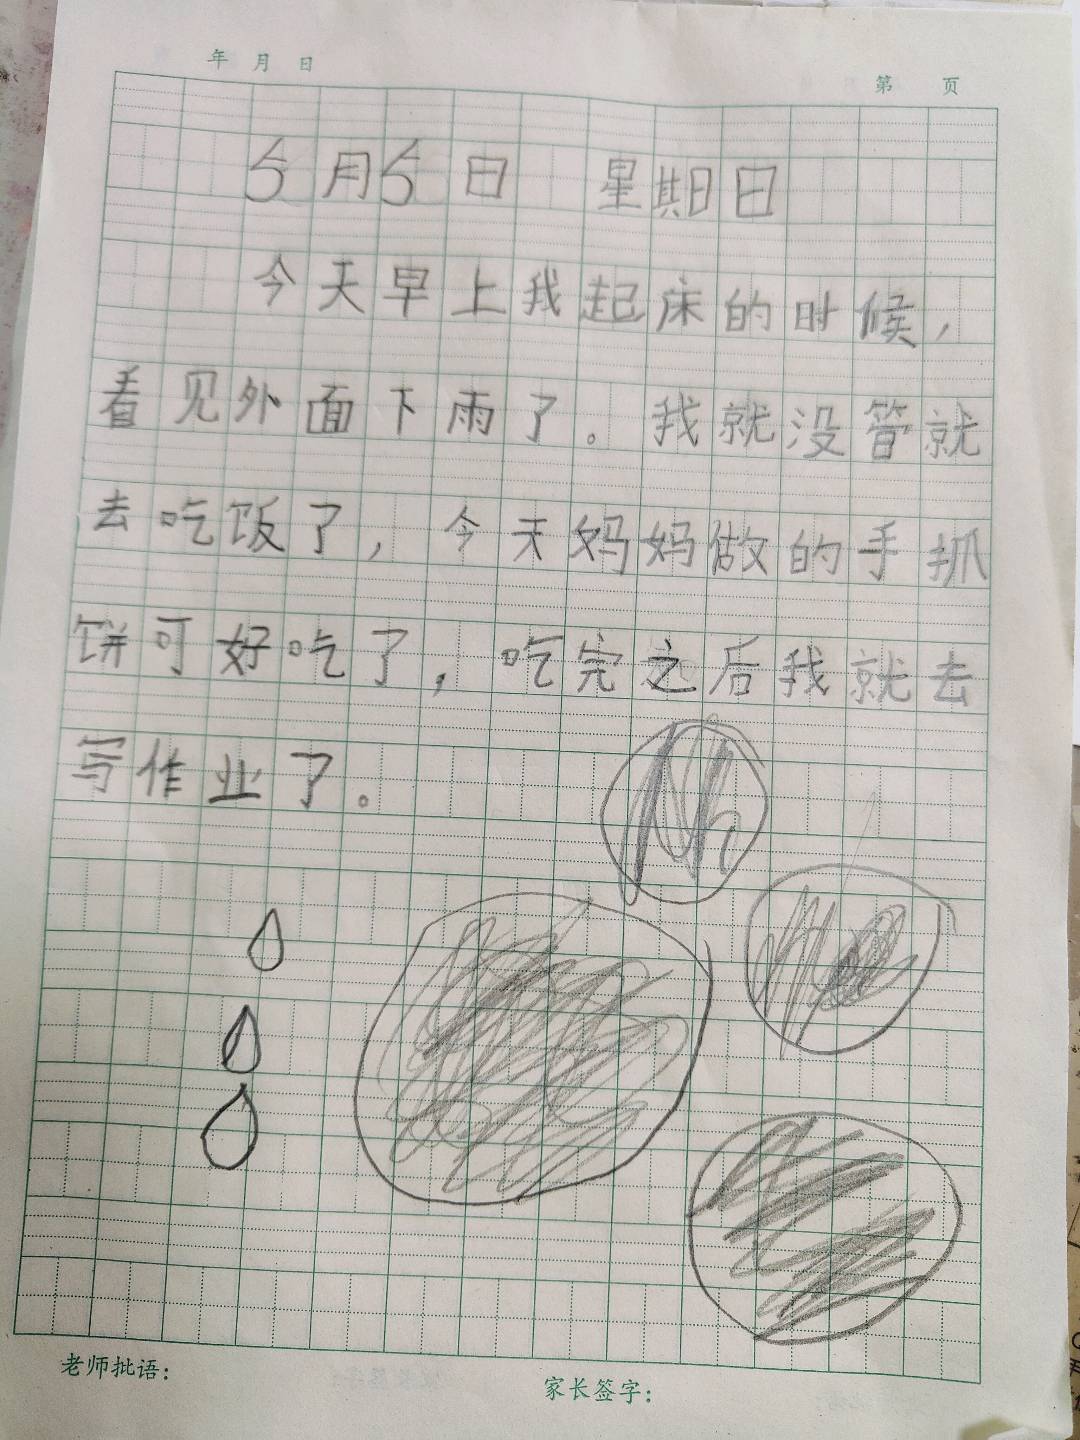 年 月 日
第 页
5月5日 星期日
今天早上我起床的时候，
看见外面下雨了。我就没管就
去吃饭了，今天妈妈做的手抓
饼可好吃了，吃完之后我就去
写作业了。
老师批语：
家长签字：